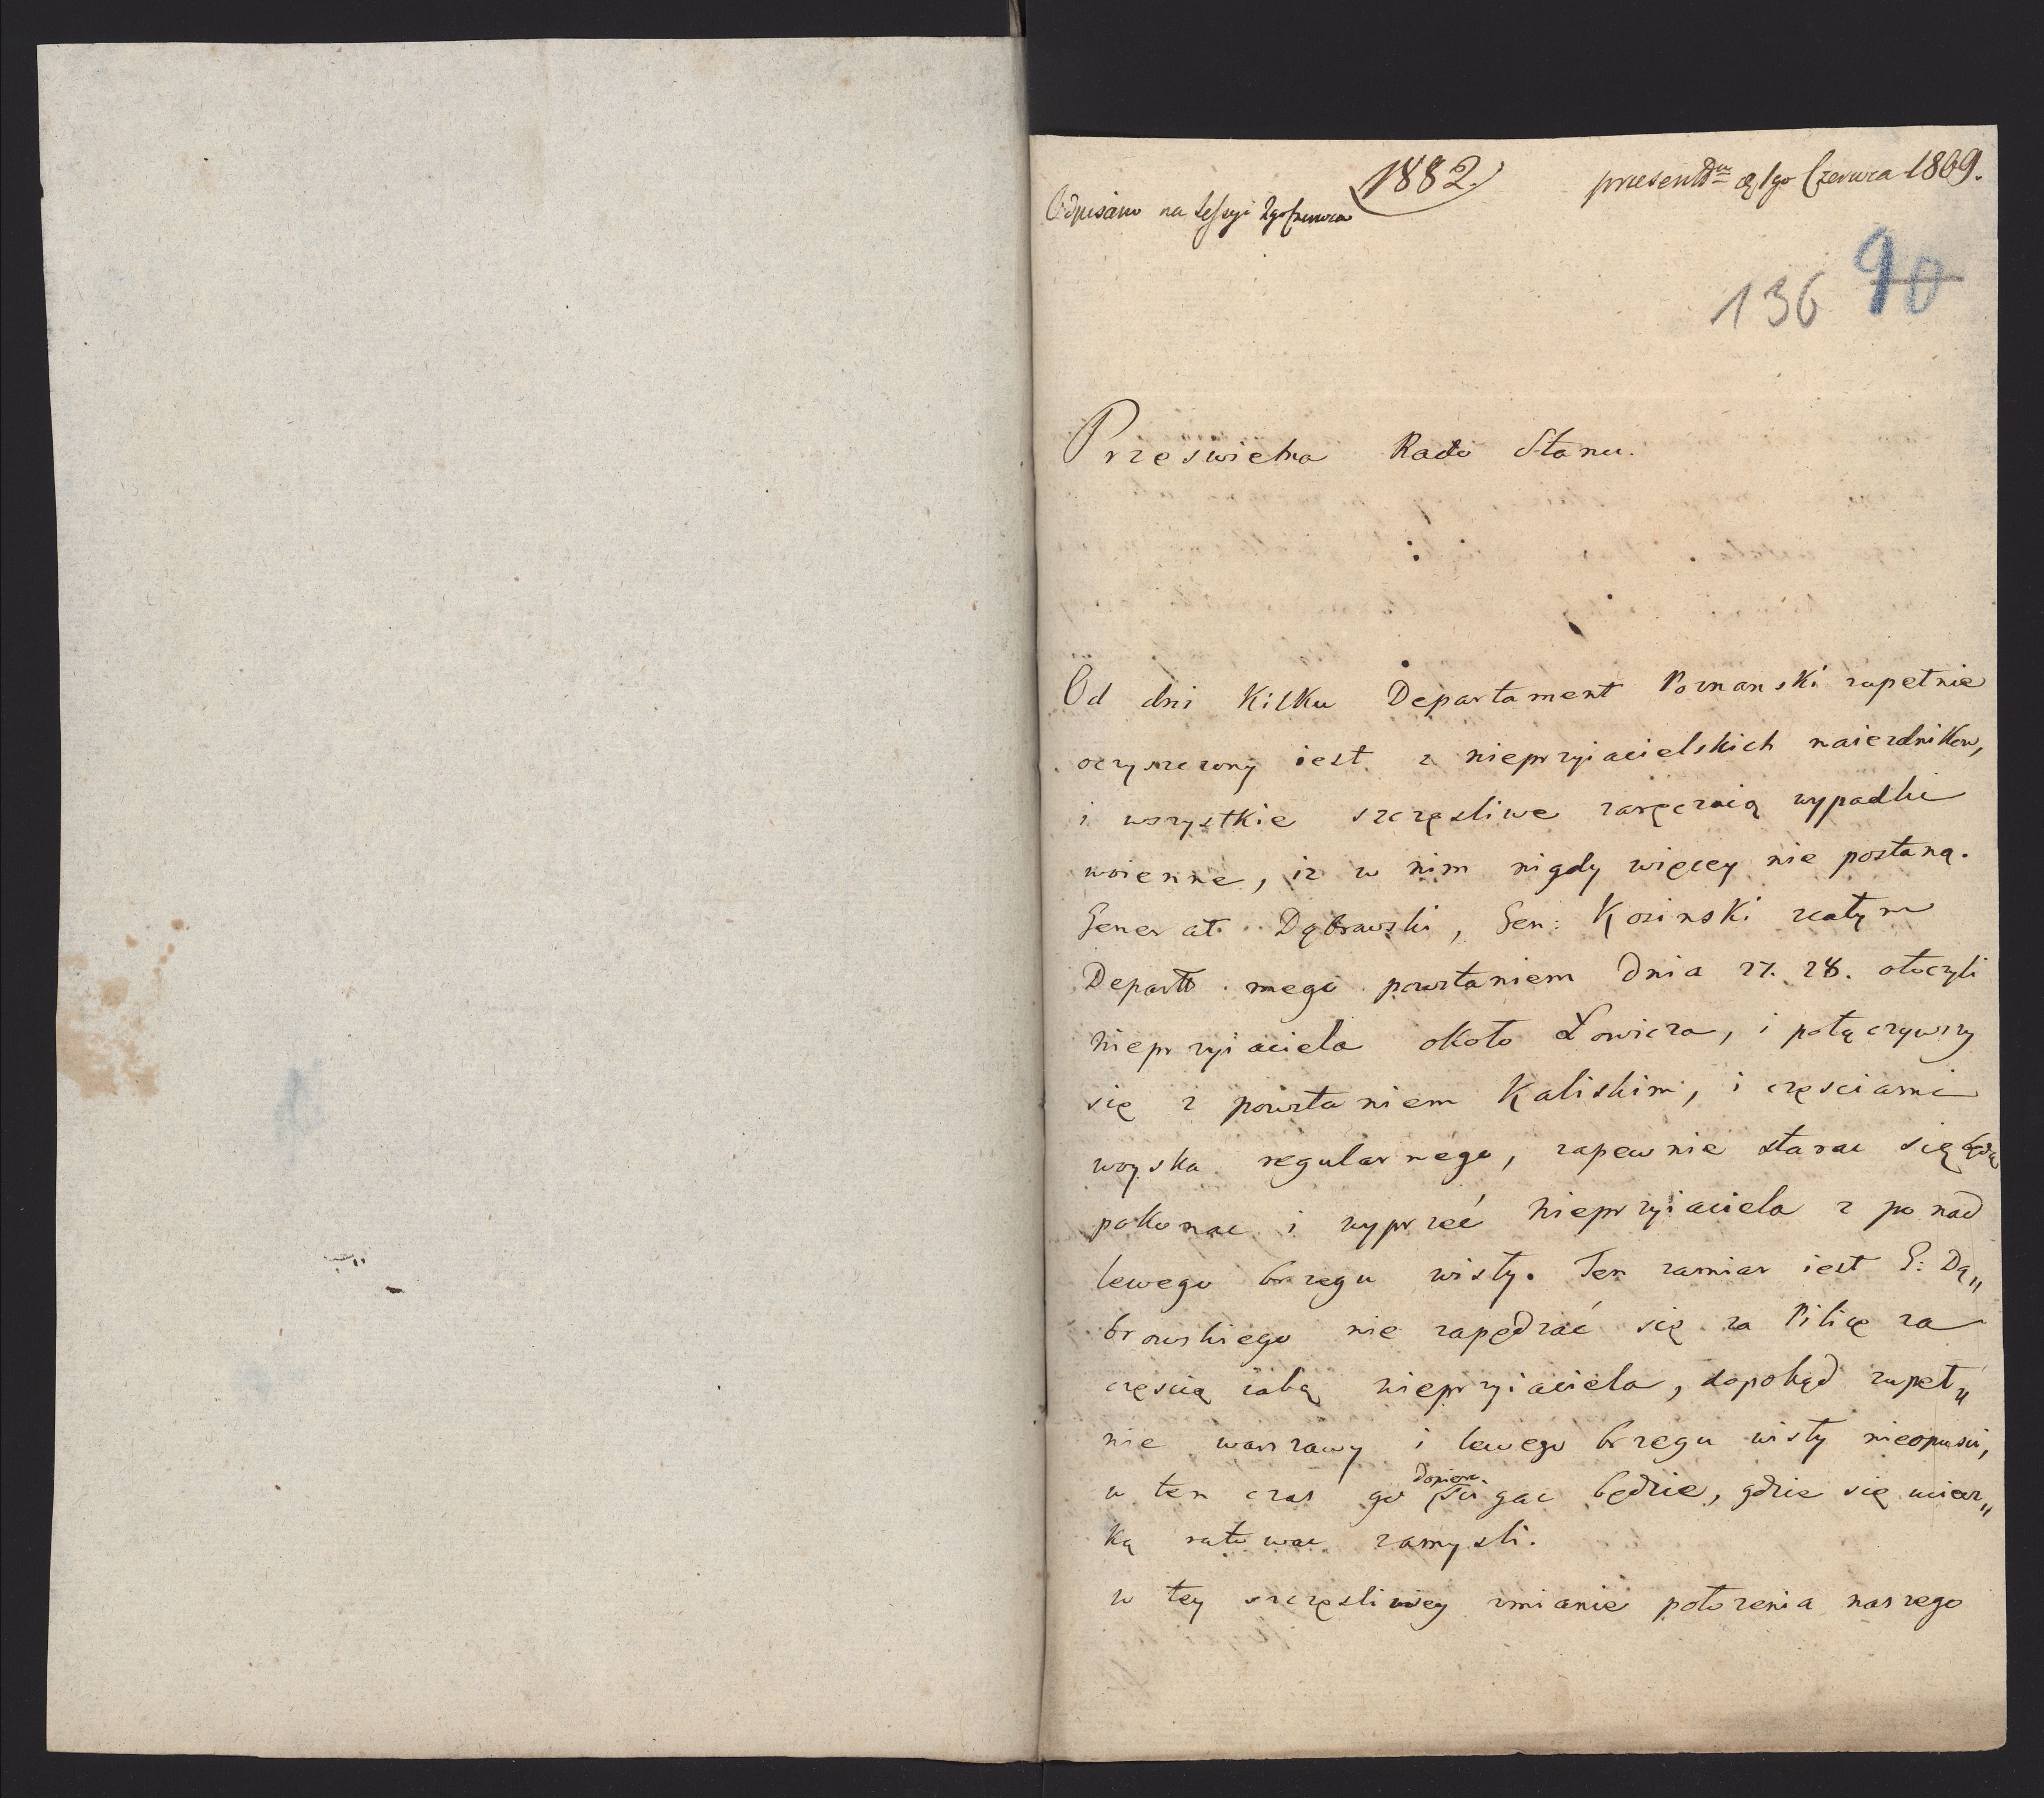 1882.
praesentm d 1go Czerwca 1809.
Odpisano na Sessyi 2go Czerwca
136 90
Prześwietna Rado Stanu.
Od dni Kilku Departament Poznanski zupełnie
oczyszczony iest z nieprzyiacielskich naiezdnikow,
i wszystkie szczęsliwe zaręczaią wypadki
woienne, iz w nim nigdy więcey nie postaną.
Generał Dąbrawski, Gen: Kosinski z całym
Departt mego powstaniem Dnia 27. 28. otoczyli
nieprzyiaciela około Łowicza, i połączywszy
się z powstaniem Kaliskim, i częsciami
woyska regularnego, zapewnie starac się będą
pokonac i wyprzeć nieprzyiaciela z po nad
lewego brzegu wisły. Ten zamiar iest G: Dą„
browskiego nie zapędzać się za Pilicę za
częscią iaką nieprzyiaciela, dopokąd zupeł„
nie warszawy i lewego brzegu wisły nieopusci,
w ten czas go dopiero scigac będzie, gdzie się uciecz„
ką ratowac zamysli.
w tey szczęsliwey zmianie położenia naszego